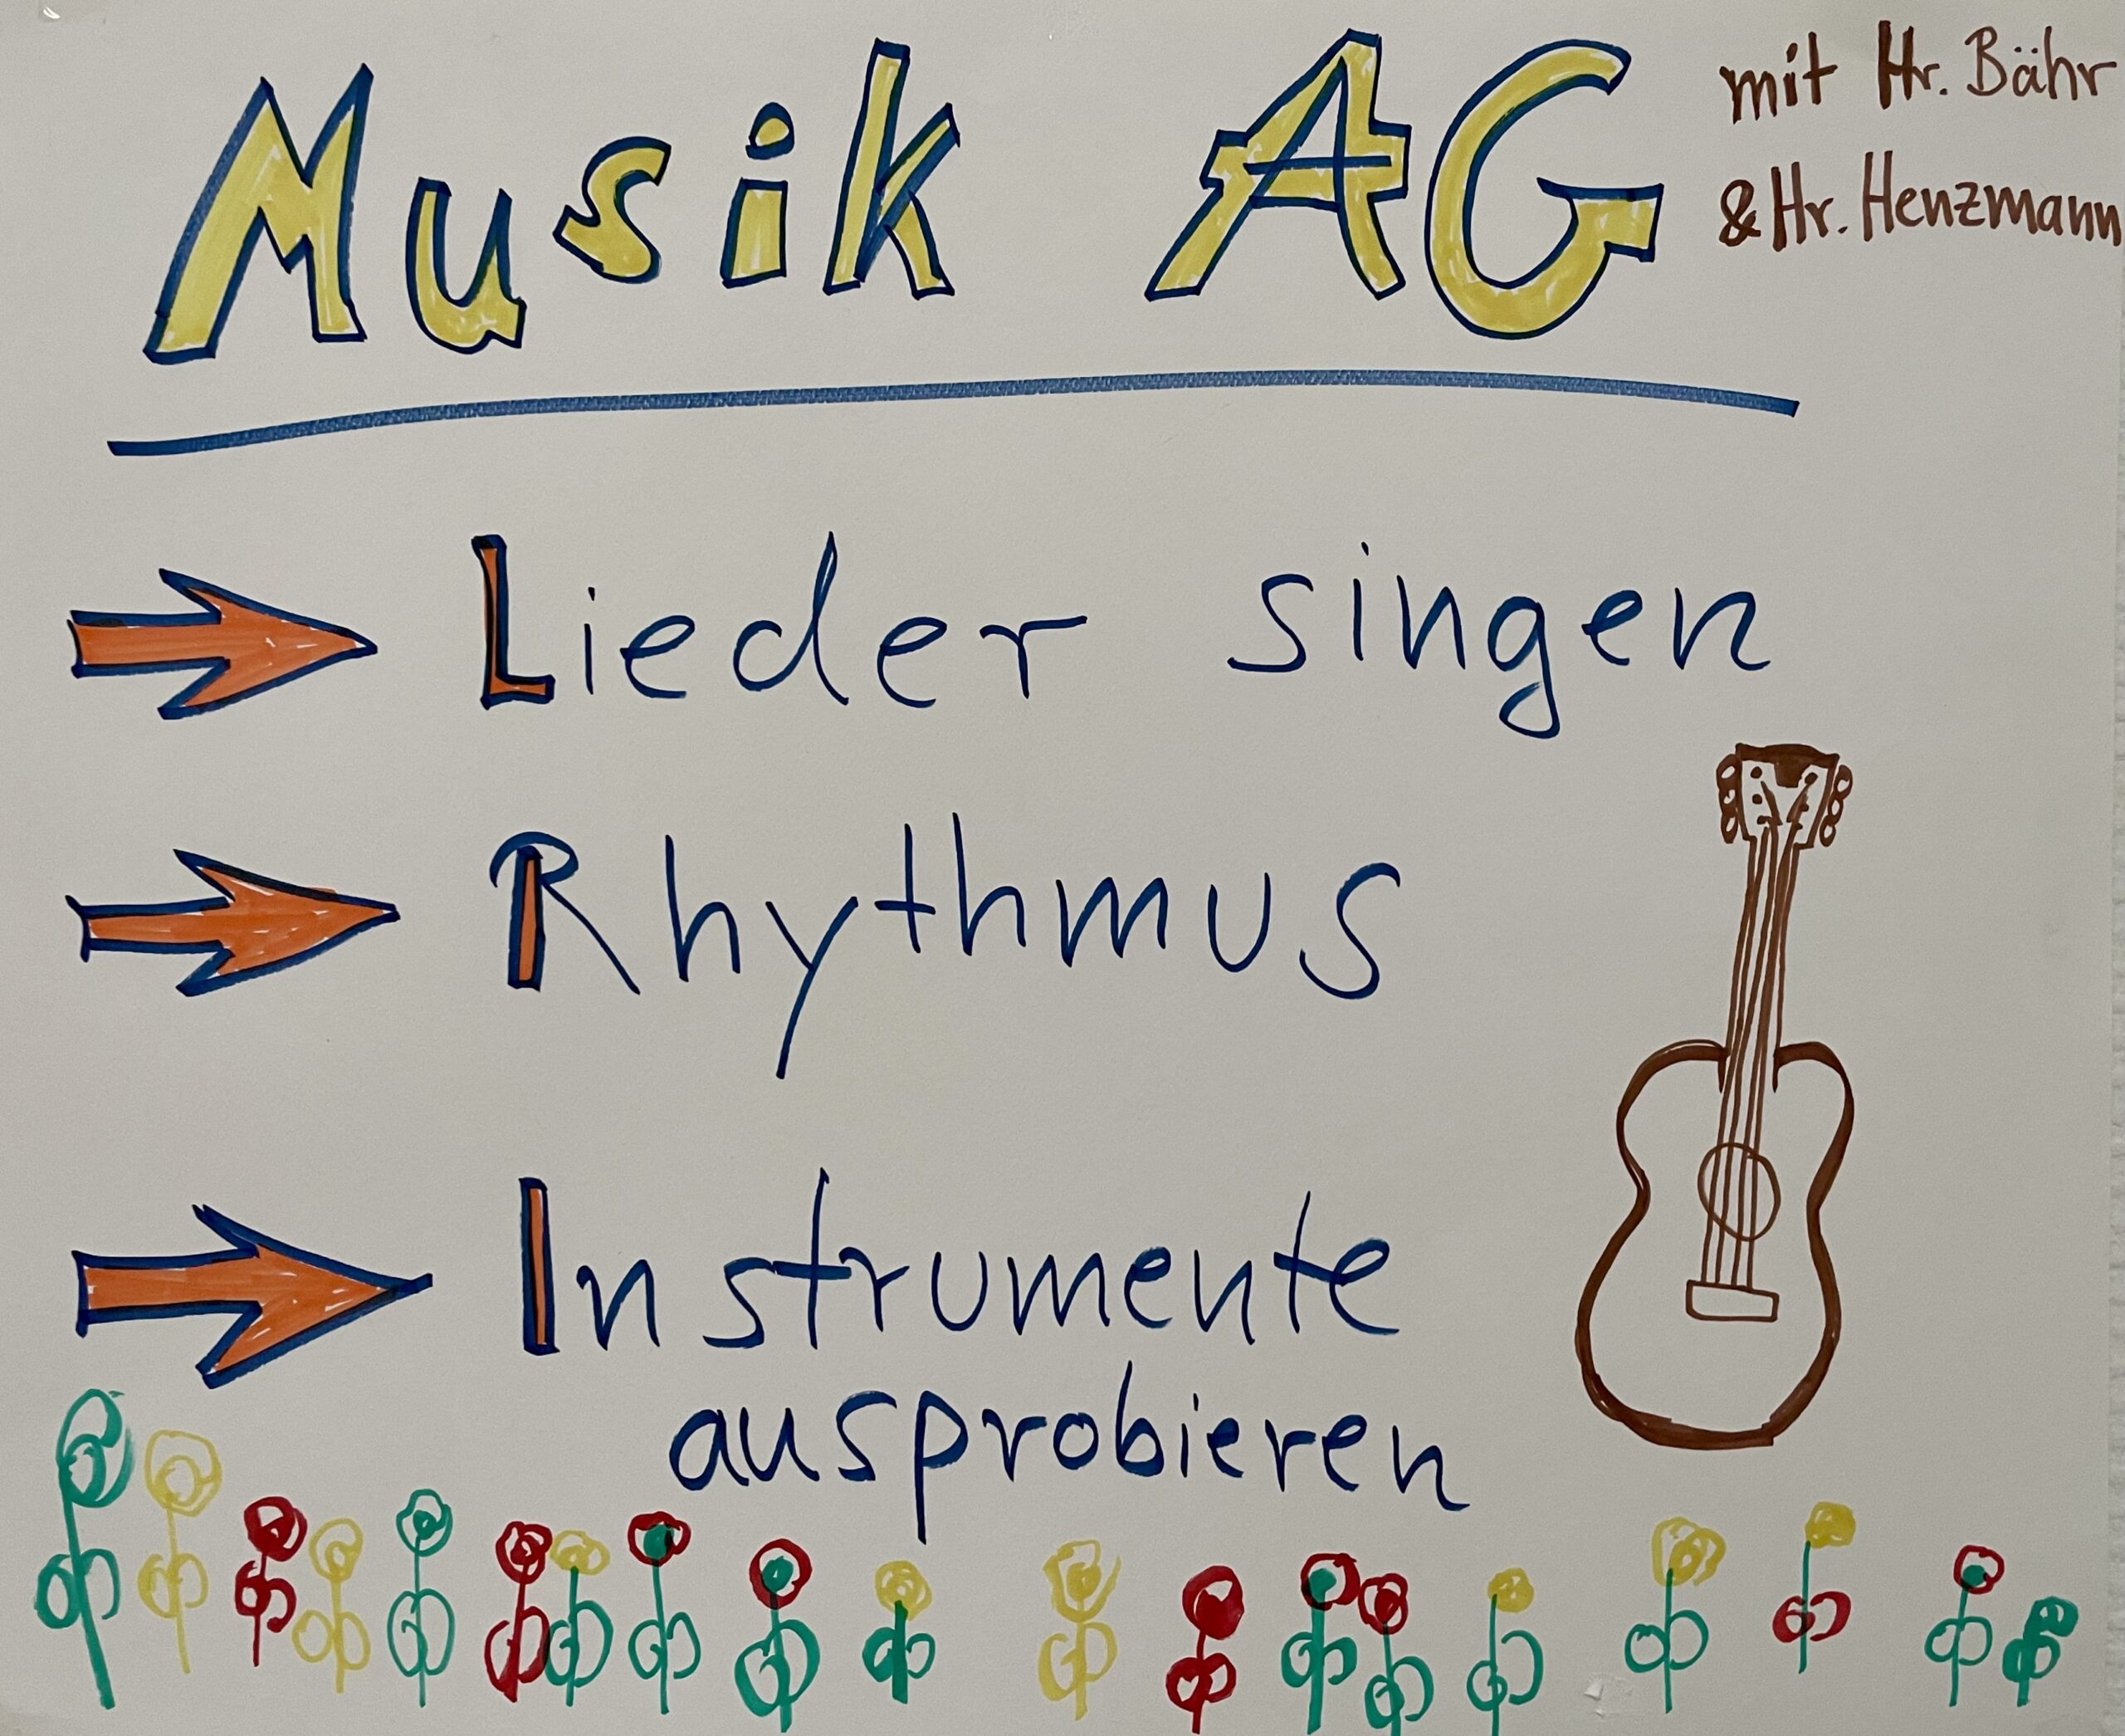 Musik AG
mit Hr. Bähr
& Hr. Henzmann
Lieder singen
Rhythmus
Instrumente
ausprobieren